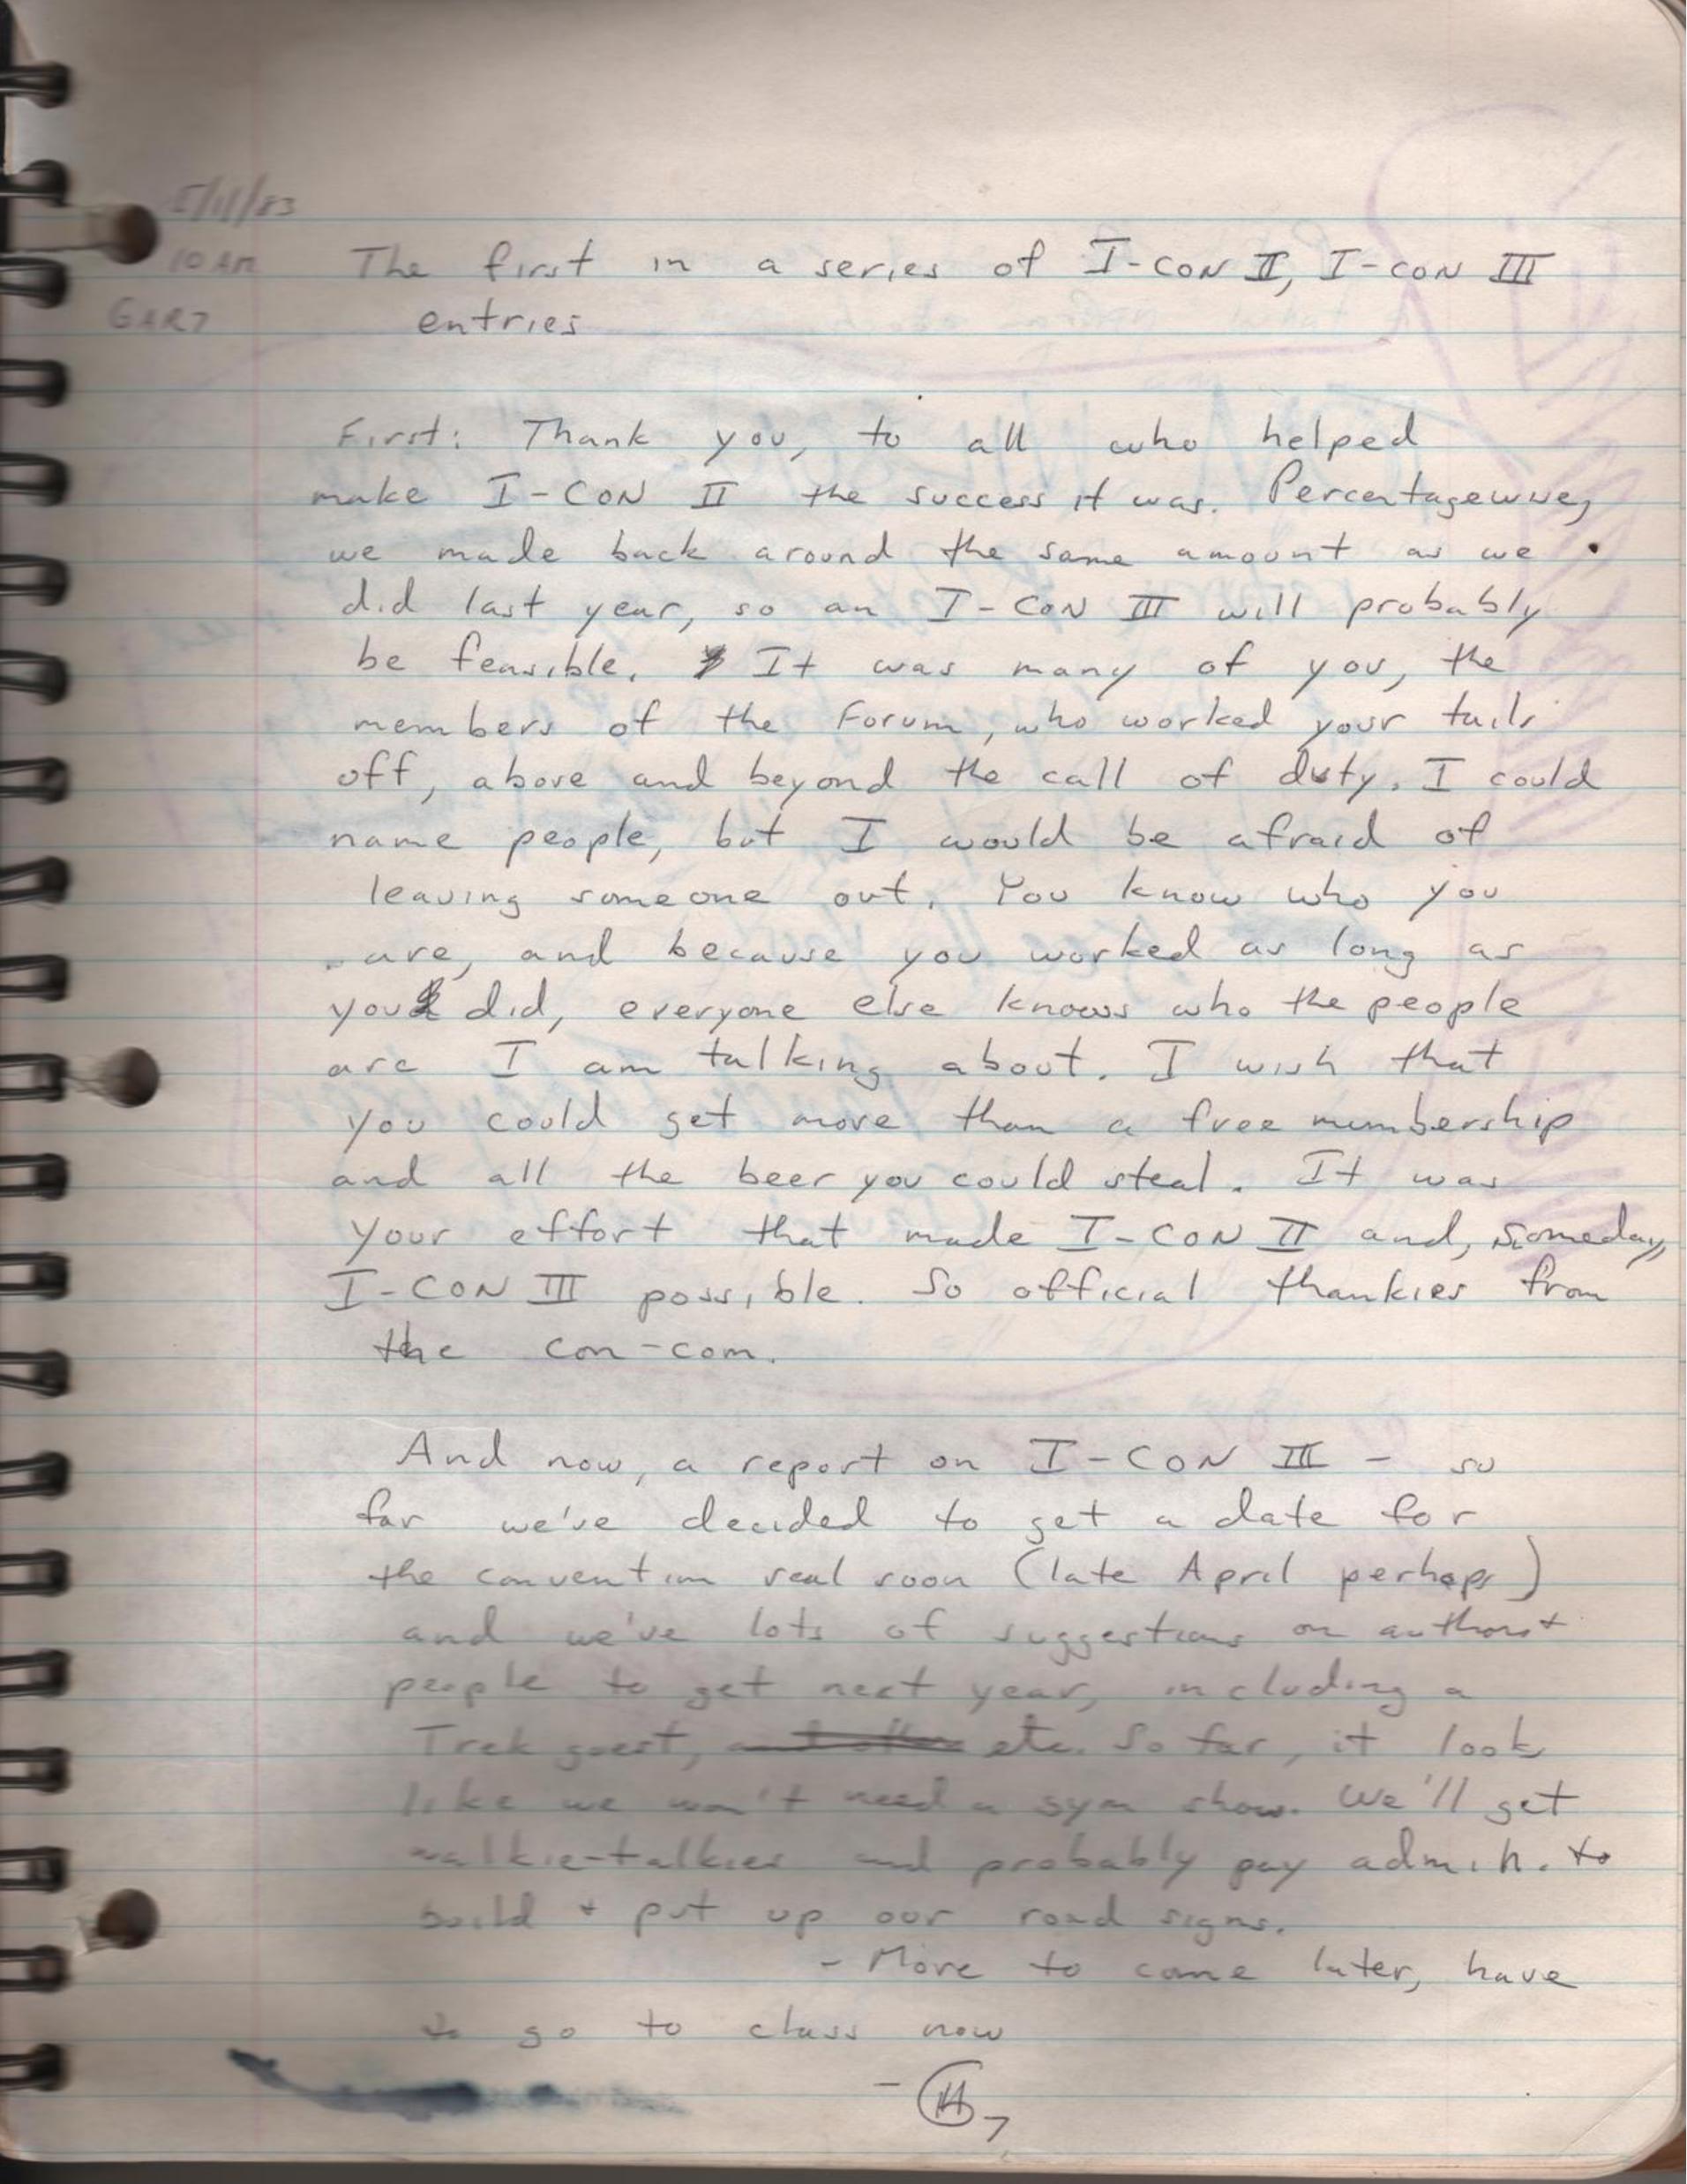 5/11/83
10 AM
GAR7
The first in a series of I-CON II, I-CON III
entries
First: Thank you, to all who helped
make I-CON II the success it was. Percentagewise,
we made back around the same amount as we
did last year, so an I-CON III will probably
be feasible. It was many of you, the
members of the Forum, who worked your tails
off, above and beyond the call of duty. I could
name people, but I would be afraid of
leaving someone out. You know who you
are, and because you worked as long as
you did, everyone else knows who the people
are I am talking about. I wish that
you could get more than a free membership
and all the beer you could steal. It was
your effort that made I-CON II and, someday,
I-CON III possible. So official thankies from
the con-com.
And now, a report on I-CON III - so
far we've decided to get a date for
the convention real soon (late April perhaps)
and we've lots of suggestions on authors +
people to get next year, including a
Trek guest, etc. So far, it look
like we won't need a sym show. We'll get
walkie-talkies and probably pay admin. to
build + put up our road signs.
- More to come later, have
to go to class now